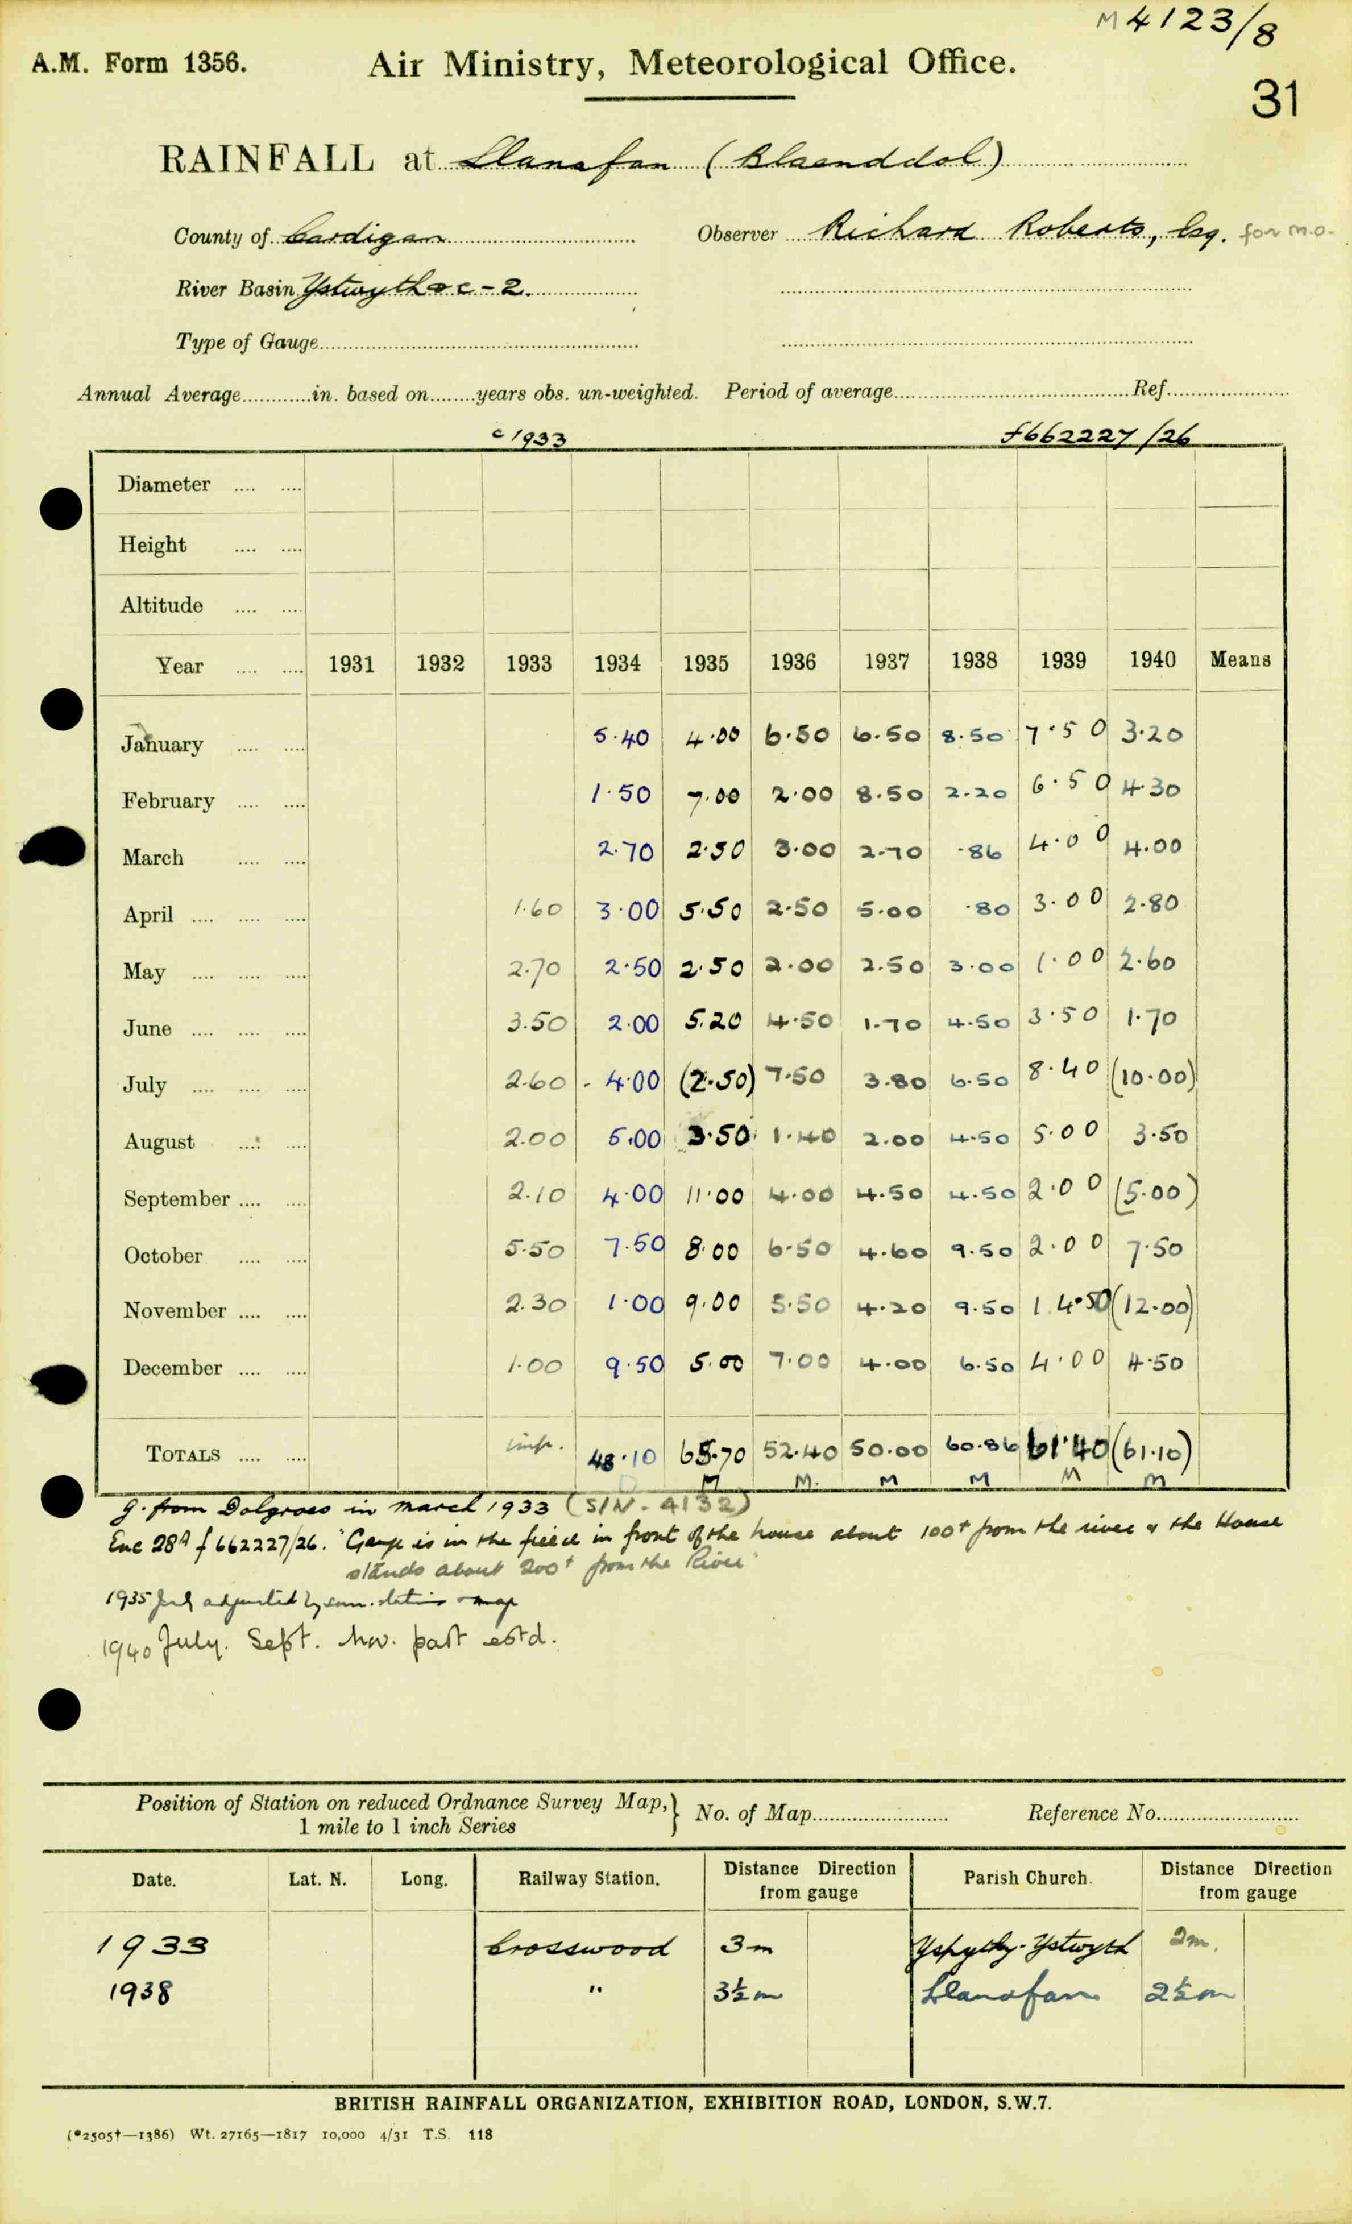 M 4123/8
A.M. Form 1356. Air Ministry, Meteorological Office.
31
RAINFALL at Llanafan (Blaenddol)
County of Cardigan Observer Richard Roberts, Esq. for M.O.
River Basin Ystwyth c-2.
Type of Gauge
Annual Average in. based on years obs. un-weighted. Period of average Ref.
c 1933 f662227/26
Diameter
Height
Altitude
Year 1931 1932 1933 1934 1935 1936 1937 1938 1939 1940 Means
January 5.40 4.00 6.50 6.50 8.50 7.50 3.20
February 1.50 7.00 2.00 8.50 2.20 6.50 4.30
March 2.70 2.50 3.00 2.70 .86 4.00 4.00
April 1.60 3.00 5.50 2.50 5.00 .80 3.00 2.80
May 2.70 2.50 2.50 2.00 2.50 3.00 1.00 2.60
June 3.50 2.00 5.20 4.50 1.70 4.50 3.50 1.70
July 2.60 - 4.00 (2.50) 7.50 3.80 6.50 8.40 (10.00)
August 2.00 5.00 3.50 1.40 2.00 4.50 5.00 3.50
September 2.10 4.00 11.00 4.00 4.50 4.50 2.00 (5.00)
October 5.50 7.50 8.00 6.50 4.60 9.50 2.00 7.50
November 2.30 1.00 9.00 5.50 4.20 9.50 14.50 (12.00)
December 1.00 9.50 5.00 7.00 4.00 6.50 4.00 4.50
TOTALS imp. 48.10 65.70 52.40 50.00 60.86 61.40 (61.10)
D M M. M M M M
g. from Dolgroes in March 1933 (S/N - 4132)
Enc 28A f 662227/26. "Gauge is in the field in front of the house about 100+ from the river & the House
stands about 200+ from the River"
1935 July adjusted by surr. stations & map
1940 July. Sept. Nov. part estd.
Position of Station on reduced Ordnance Survey Map, 1 mile to 1 inch Series } No. of Map Reference No.
Date. Lat. N. Long. Railway Station. Distance Direction from gauge Parish Church. Distance Direction from gauge
1933 Crosswood 3m Yspytty-Ystwyth 2m.
1938 " 3½m Llanafan 2½m
BRITISH RAINFALL ORGANIZATION, EXHIBITION ROAD, LONDON, S.W.7.
(*2505†—1386) Wt. 27165—1817 10,000 4/31 T.S. 118